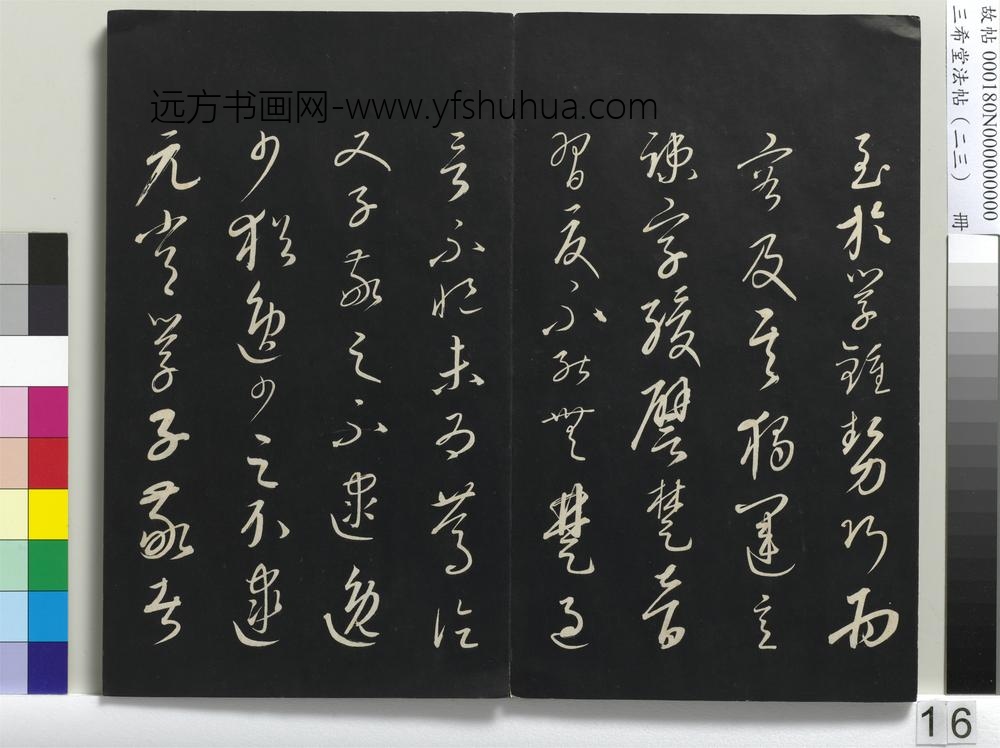 故帖 000180N000000000
三希堂法帖(二三) 冊
远方书画网-www.yfshuhua.com
至於學鍾勢巧而
密及其獨運意
疎字緩譬楚音
習夏不能無楚過
言不悒未為篤論
又子敬之不逮逸
少猶逸少之不逮
元常學子敬者
16